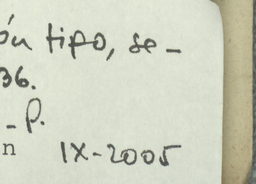 ón tipo, se-
36.
- P.
n IX-2005